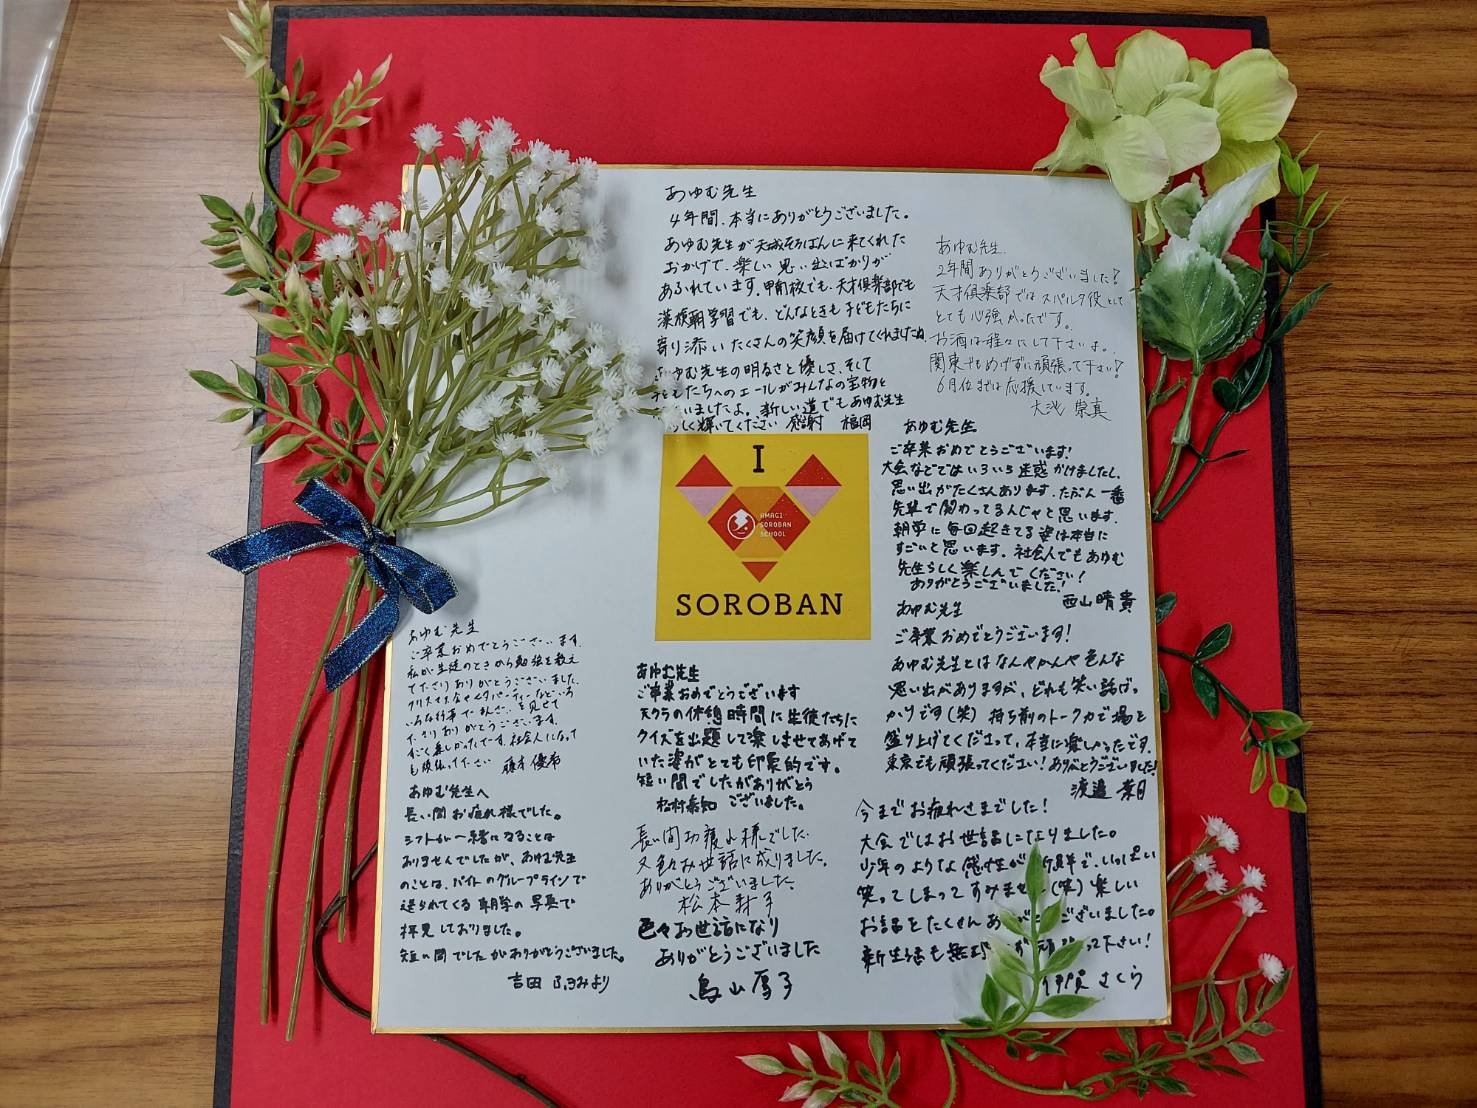 あゆむ先生
4年間、本当にありがとうございました。
あゆむ先生が天城そろばんに来てくれた
おかげで、楽しい思い出ばかりが
あふれています。甲南校でも、天才倶楽部でも
漢族朝学習でも、どんなときも子どもたちに
寄り添いたくさんの笑顔を届けてくれましたね
あゆむ先生の明るさと優しさ、そして
子どもたちへのエールがみんなの宝物と
いましたよ。新しい道でもあゆむ先生
らしく輝いてください 感謝 福岡
あゆむ先生
2年間ありがとうございました!
天才倶楽部ではスパルタ役として
とても心強かったです。
お酒は程々にして下さいね。
関東でもめげずに頑張って下さい!
6月位までは応援しています。
大池 崇真
あゆむ先生
ご卒業おめでとうございます!
大会などではいろいろ迷惑かけましたし、
思い出がたくさんあります。たぶん一番
先輩で関わってるんじゃと思います。
朝学に毎回起きてる姿は本当に
すごいと思います。社会人でもあゆむ
先生らしく楽しんでください!
ありがとうございました!
西山晴貴
I
AMAGI
SOROBAN
SCHOOL
SOROBAN
あゆむ先生
ご卒業おめでとうございます!
あゆむ先生とはなんやかんや色んな
思い出がありますが、どれも笑い話ば
かりです(笑) 持ち前のトーク力で場を
盛り上げてくださって、本当に楽しかったです。
東京でも頑張ってください!ありがとうございました!
渡邉 菜月
あゆむ先生
ご卒業おめでとうございます。
私が生徒のときから勉強を教え
て下さりありがとうございました。
クリスマス会やバーティーなどいろ
いろな行事で を見せて
下さりありがとうございます。
すごく楽しかったです。社会人になって
も頑張って下さい 藤本優希
あゆむ先生
ご卒業おめでとうございます
天クラの休憩時間に生徒たちに
クイズを出題して楽しませてあげて
いた姿がとても印象的です。
短い間でしたがありがとう
ございました。
松村
あゆむ先生へ
長い間お疲れ様でした。
シフトが一緒になることは
ありませんでしたが、あゆむ先生
のことは、バイトのグループラインで
送られてくる朝学の写真で
拝見しておりました。
短い間でしたがありがとうございました。
吉田 ふみより
長い間お疲れ様でした。
又色々お世話に成りました。
ありがとうございました。
松本
色々お世話になり
ありがとうございました
鳥山厚子
今までお疲れさまでした!
大会ではお世話になりました。
少年のような感性が新鮮で、いっぱい
笑ってしまってすみません(笑) 楽しい
お話をたくさんありがとうございました。
新生活も 下さい!
さくら